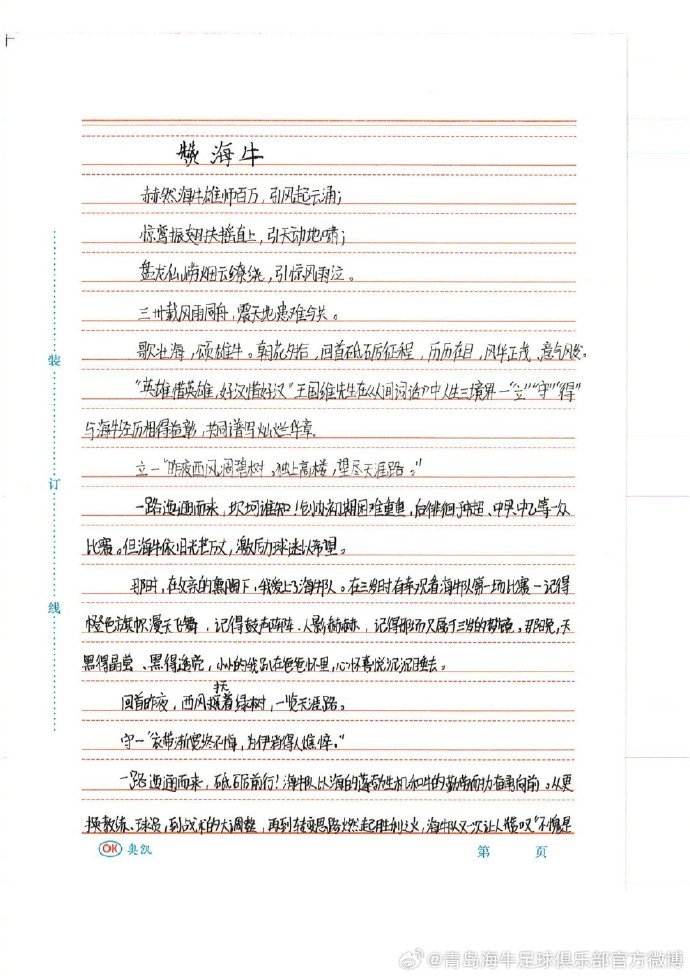 赞海牛
赫然海牛雄师百万，引风起云涌；
惊鸾振翅扶摇直上，引天动地啸；
盘龙仙峭烟云缭绕，引惊风雨泣。
三卅载风雨同舟，震天地患难与共。
歌壮海，颂雄牛。朝花夕拾，回首砥砺征程，历历在目，风华正茂、意气风发。
“英雄惜英雄，好汉惜好汉”王国维先生在《人间词话》中人生三境界一“立”“守”“得”
与海牛经历相得益彰，共同谱写灿烂华章。
立一“昨夜西风凋碧树。独上高楼，望尽天涯路。”
一路迤逦而来，坎坷谁知！创办初期困难重重，白徘徊于中超、中甲、中乙等一众
比赛。但海牛依旧光芒万丈，激励球迷以希望。
那时，在父亲的熏陶下，我爱上了海牛队。在三岁时有幸观看海牛队第一场比赛一记得
橙色旗帜漫天飞舞，记得鼓声阵阵、人影赫赫，记得那场又属于三岁的朦胧。那晚，天
黑得晶莹、黑得透亮，小小的我趴在爸爸怀里，心怀喜悦沉沉睡去。
回首昨夜，西风抚着绿树，一览天涯路。
守一“衣带渐宽终不悔，为伊消得人憔悴。”
一路迤逦而来，砥砺前行！海牛队以海的蓬勃生机和牛的勤劳耐力奋勇向前。从更
换教练、球员，到战术的大调整，再到转变思路燃起胜利之火，海牛队又一次让人惊叹“不愧是
装
订
线
OK 奥凯
第 页
@青岛海牛足球俱乐部官方微博